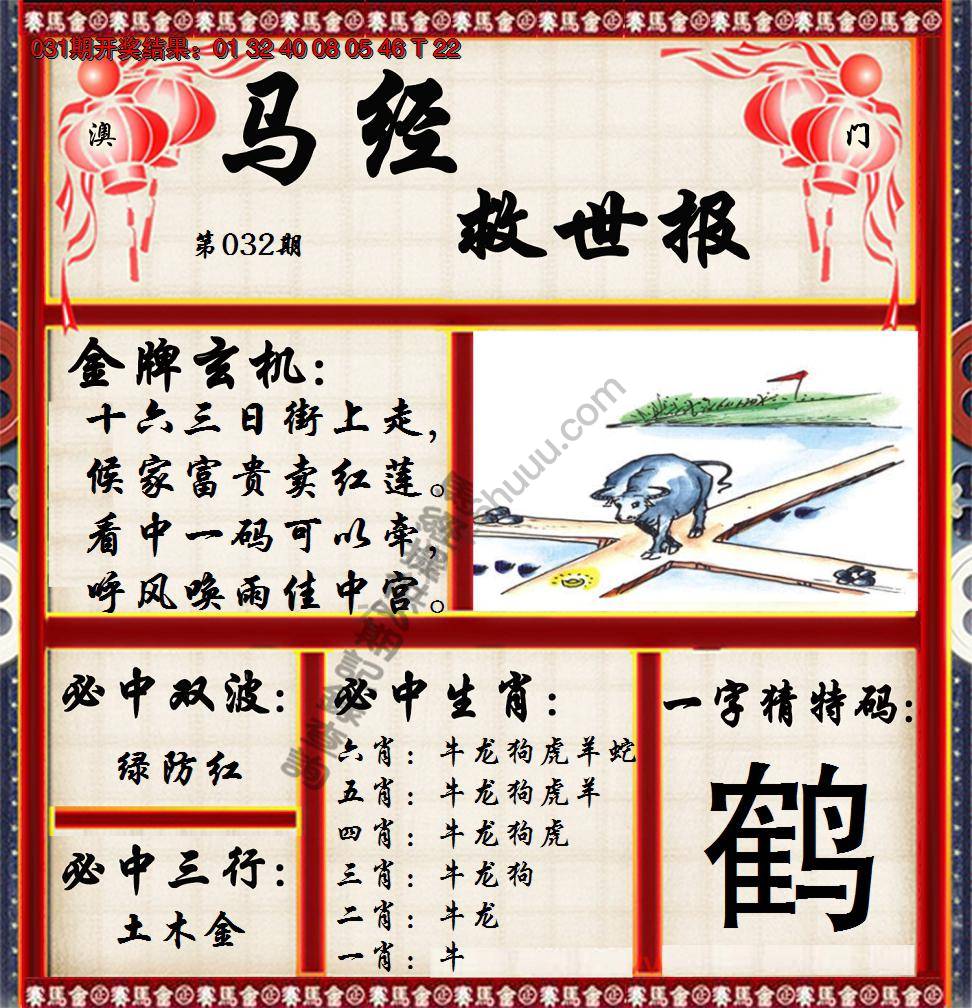 031期开奖结果：01 32 40 08 05 46 T 22
澳
门
马经
救世报
第032期
金牌玄机：
十六三日街上走，
候家富贵卖红莲。
看中一码可以牵，
呼风唤雨佳中宫。
必中双波：
绿防红
必中三行：
土木金
必中生肖：
六肖：牛龙狗虎羊蛇
五肖：牛龙狗虎羊
四肖：牛龙狗虎
三肖：牛龙狗
二肖：牛龙
一肖：牛
一字猜特码：
鹤